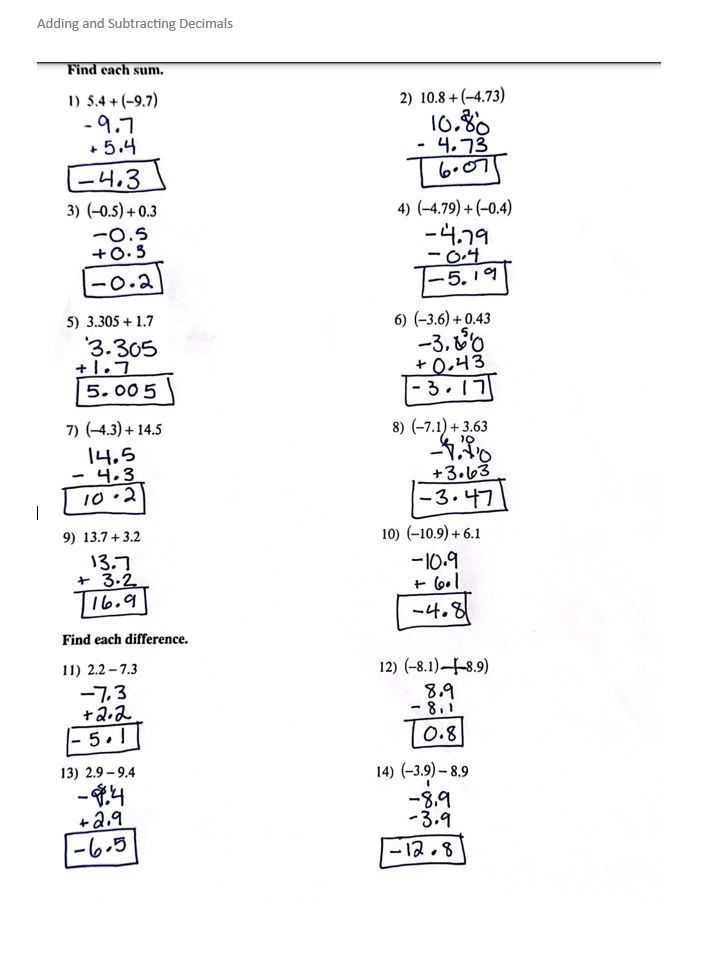 Adding and Subtracting Decimals
Find each sum.
1) 5.4 + (–9.7)
-9.7
+ 5.4
-4.3
2) 10.8 + (–4.73)
10.80
- 4.73
6.07
3) (–0.5) + 0.3
-0.5
+0.3
-0.2
4) (–4.79) + (–0.4)
-4.79
-0.4
-5.19
5) 3.305 + 1.7
3.305
+1.7
5.005
6) (–3.6) + 0.43
-3.60
+0.43
-3.17
7) (–4.3) + 14.5
14.5
- 4.3
10.2
8) (–7.1) + 3.63
-7.10
+3.63
-3.47
9) 13.7 + 3.2
13.7
+ 3.2
16.9
10) (–10.9) + 6.1
-10.9
+ 6.1
-4.8
Find each difference.
11) 2.2 – 7.3
-7.3
+2.2
-5.1
12) (–8.1) – (–8.9)
8.9
- 8.1
0.8
13) 2.9 – 9.4
-9.4
+2.9
-6.5
14) (–3.9) – 8.9
-8.9
-3.9
-12.8